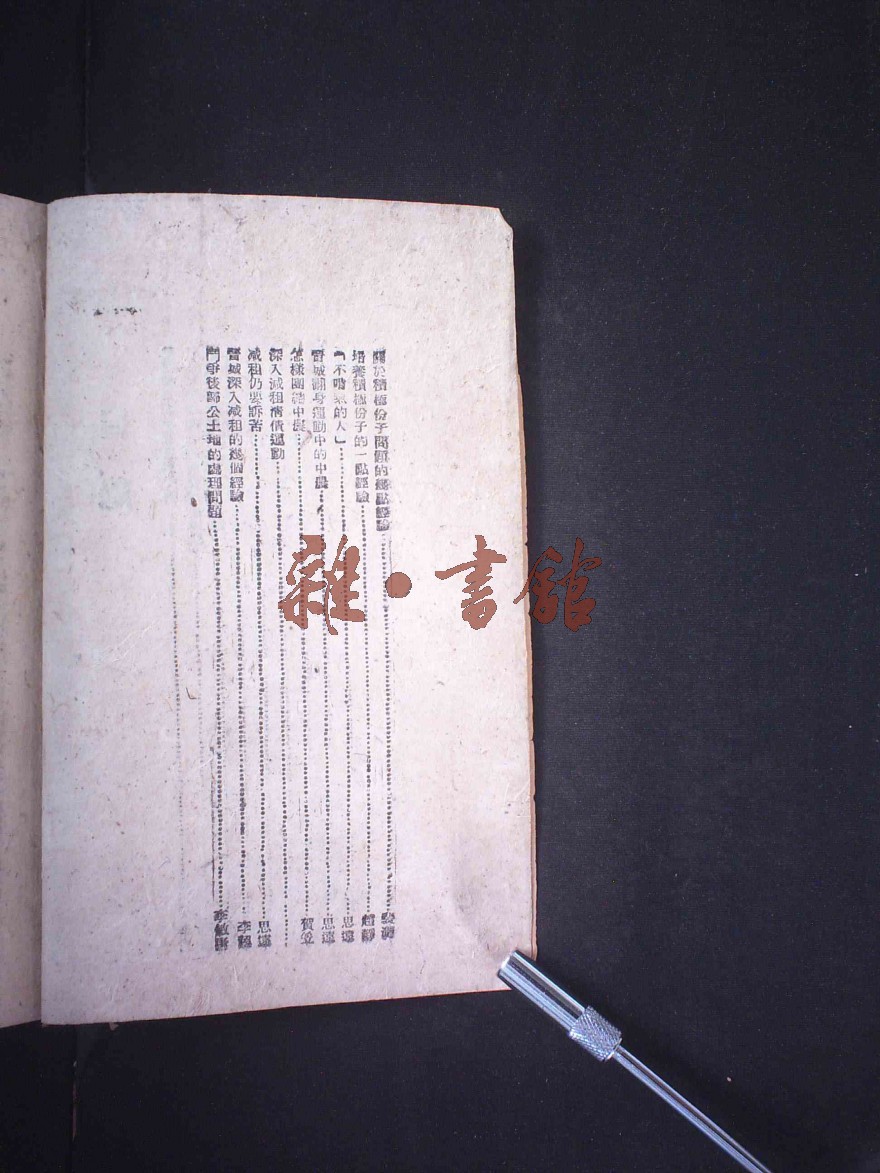 關於積極份子問題的幾點經驗
培養積極份子的一點經驗……趙靜
「不嗆氣的人」……思遠
晉城翻身運動中的中農……思遠
怎樣團結中農……賀笠
深入減租清債運動……
減租仍要訴苦……思遠
晉城深入減租的幾個經驗……李
鬥爭後歸公土地的處理問題……李敏唐
雜·書館